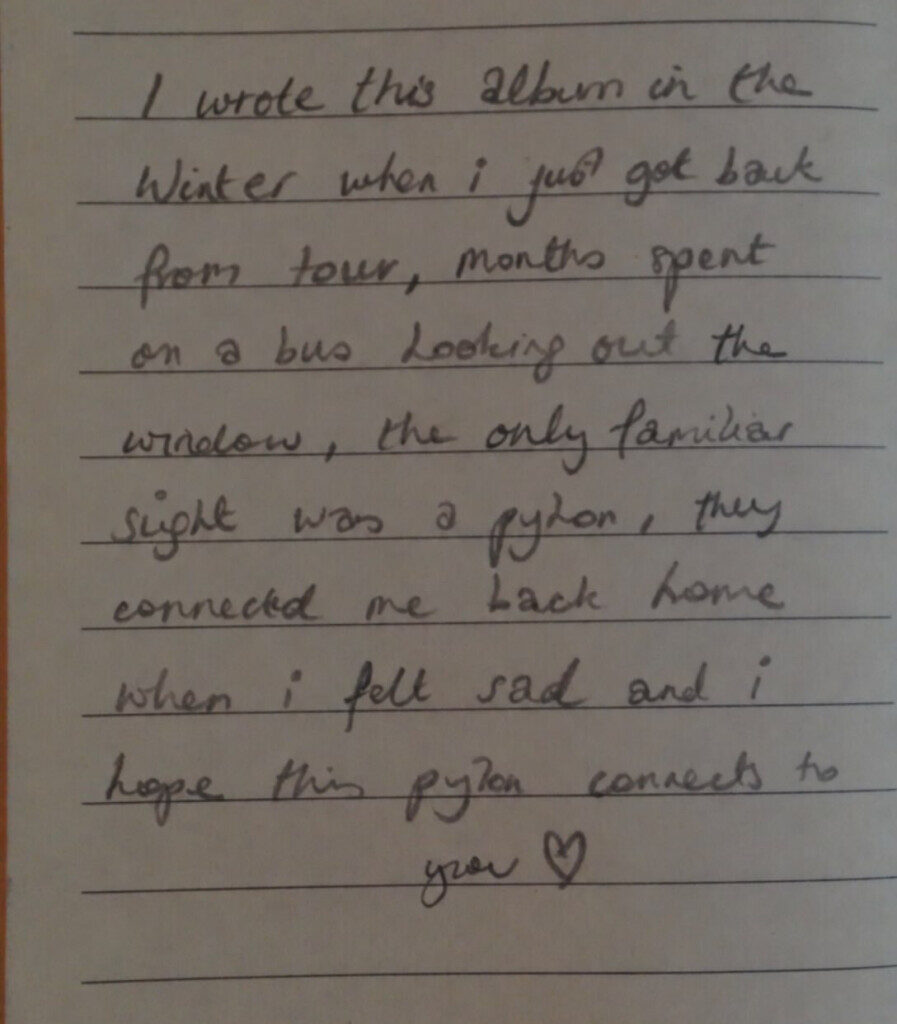 I wrote this album in the
Winter when i just got back
from tour, months spent
on a bus Looking out the
window, the only familiar
sight was a pylon, they
connected me back home
when i felt sad and i
hope this pylon connects to
you ♡